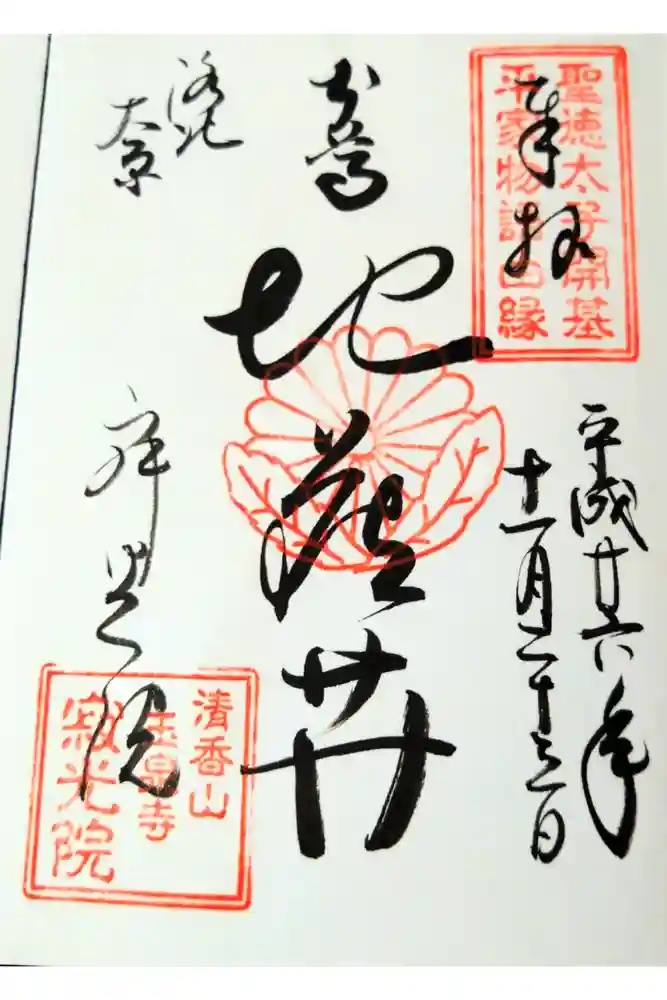 奉拝
聖徳太子開基
平家物語因縁
平成廿六年
十一月二十三日
本尊
地蔵𦬇
洛北
大原
寂光院
清香山
玉泉寺
寂光院